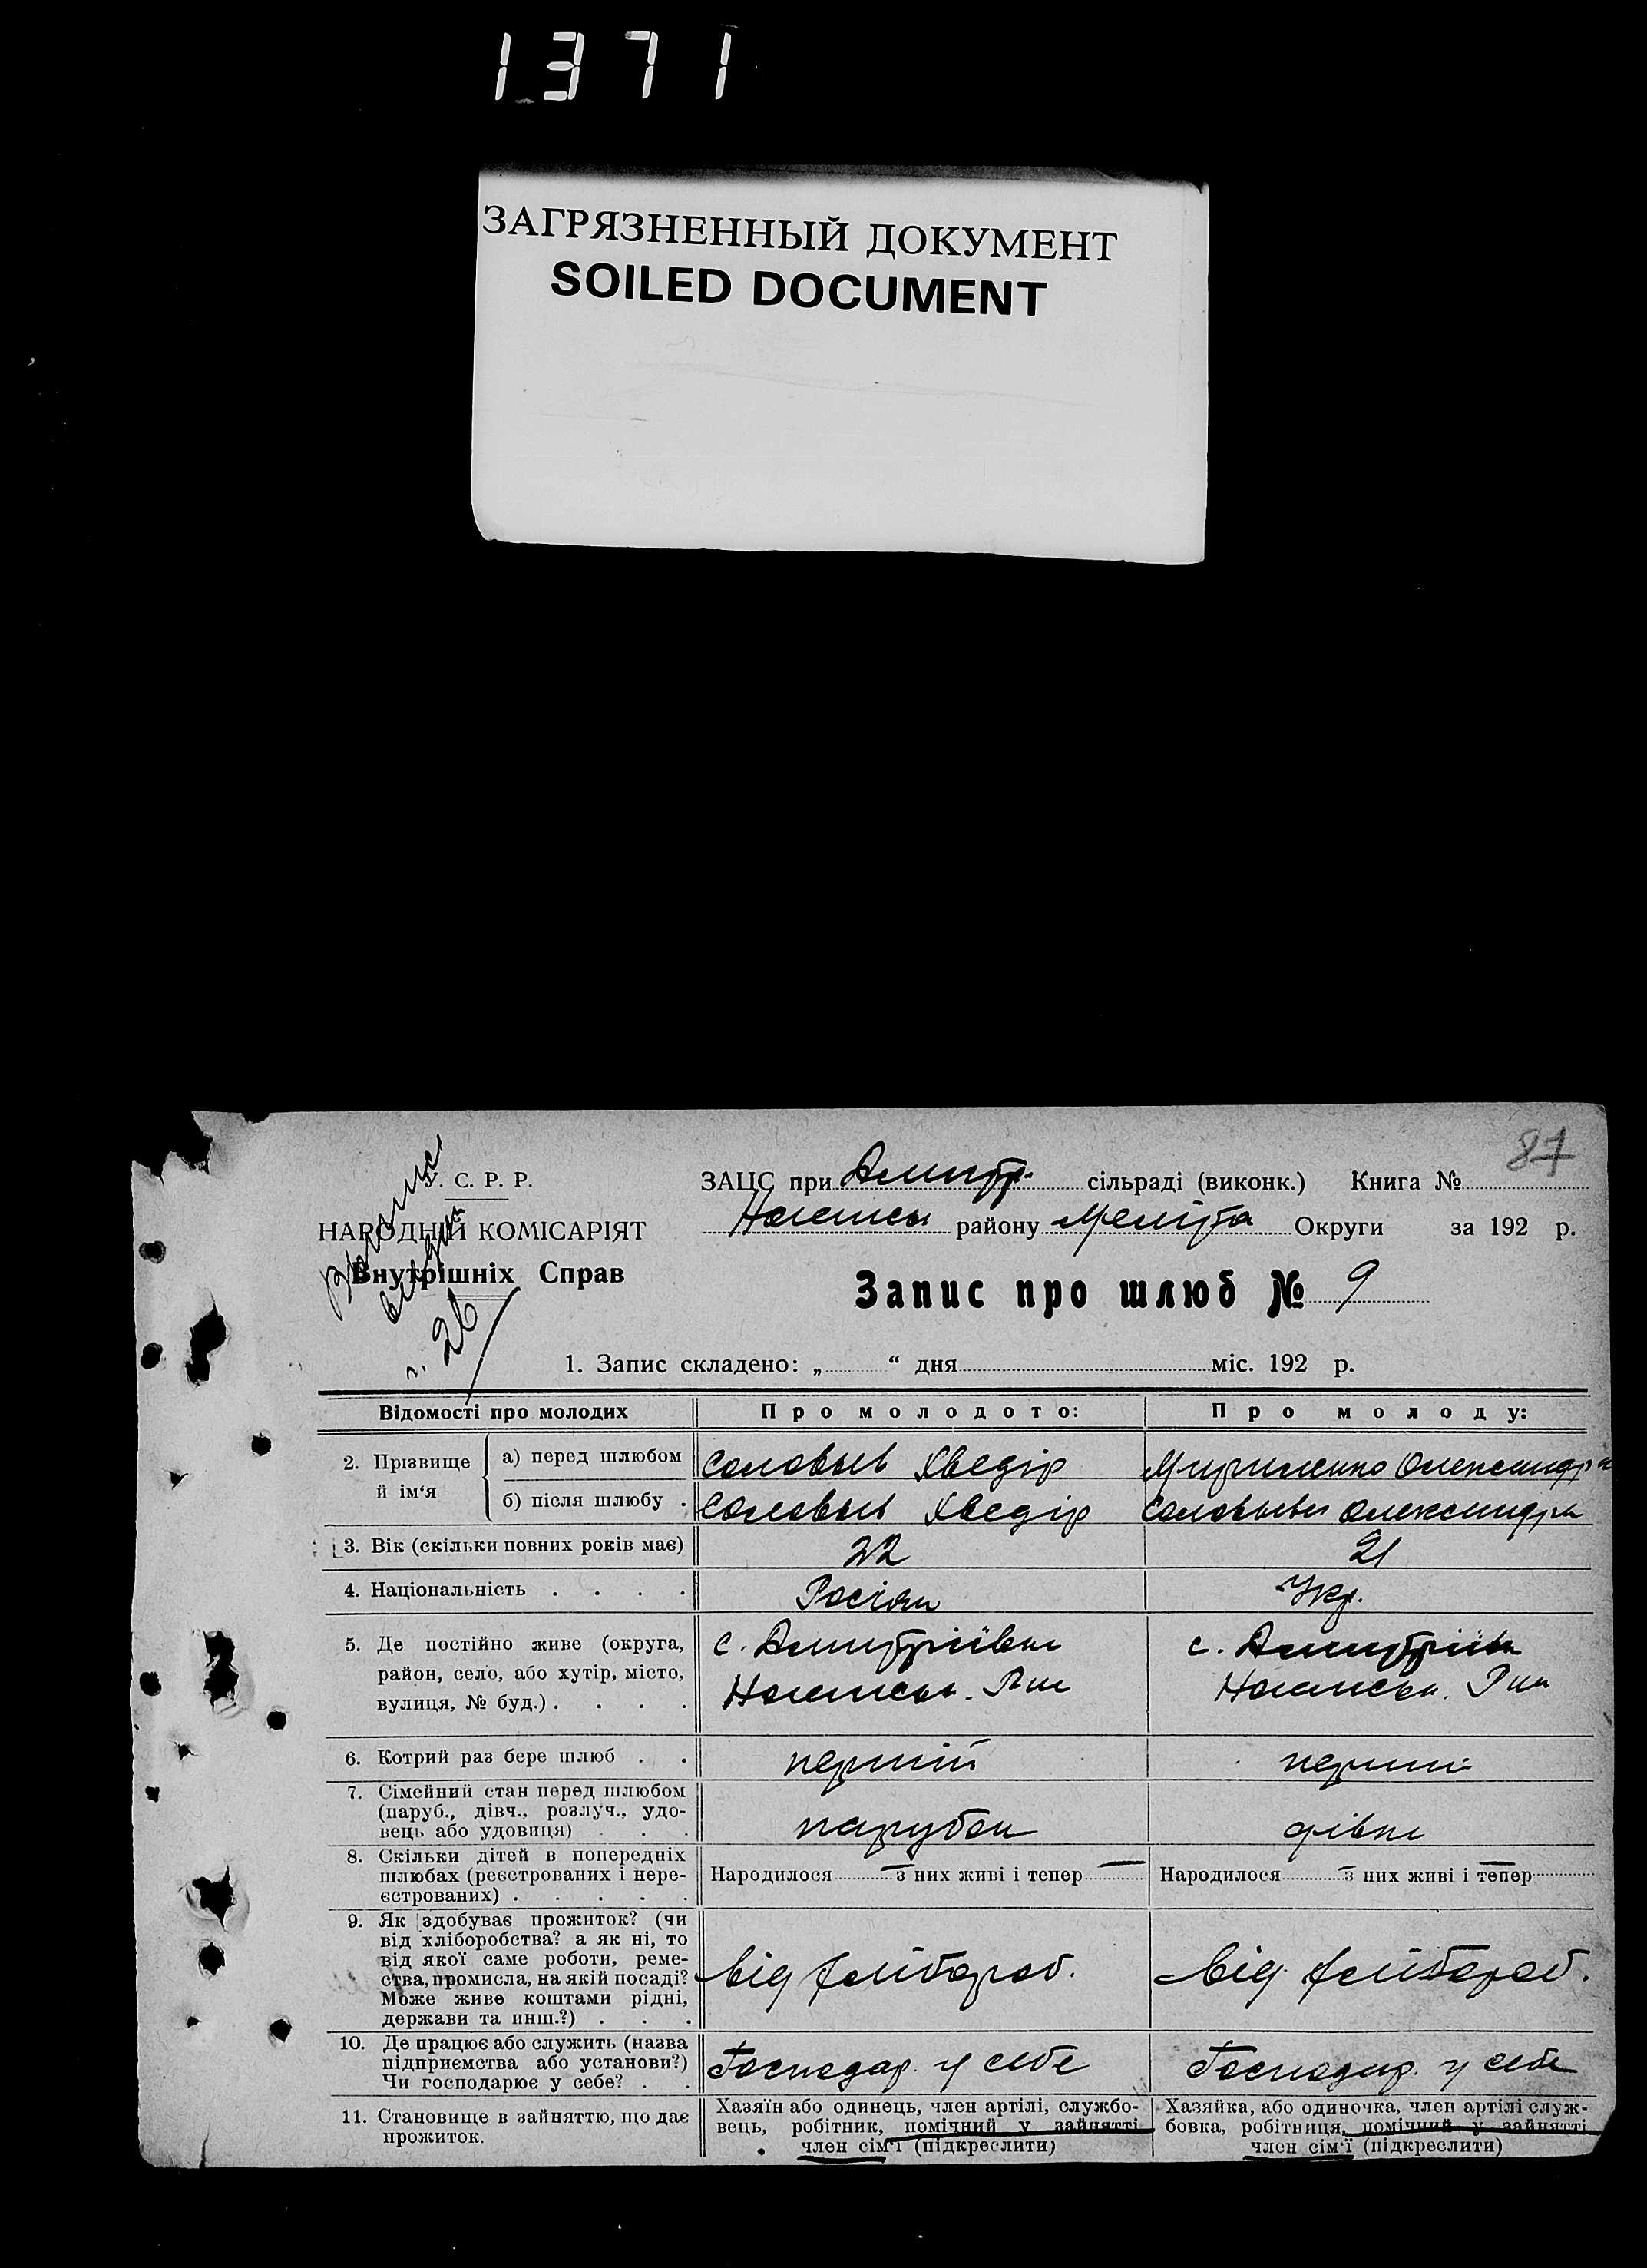 1371
ЗАГРЯЗНЕННЫЙ ДОКУМЕНТ
SOILED DOCUMENT
87
У. С. Р. Р.
НАРОДНІЙ КОМІСАРІЯТ
Внутрішніх Справ
26
ЗАЦС при Дмитр. сільраді (виконк.) Книга №
району Меліто Округи за 192 р.
Запис про шлюб № 9
1. Запис складено: „ “ дня міс. 192 р.
Відомості про молодих Про молодого: Про молоду:
2. Прізвище й ім‘я
а) перед шлюбом Соловьев Хведір Мириненко Олександра
б) після шлюбу . Соловьев Хведір Соловьева Олександра
3. Вік (скільки повних років має) 22 21
4. Національність . . . . Росіян Укр.
5. Де постійно живе (округа,
район, село, або хутір, місто,
вулиця, № буд.) . . . .
с. Дмитріівка
с. Дмитрів
6. Котрий раз бере шлюб . . перший перший
7. Сімейний стан перед шлюбом
(паруб., дівч., розлуч., удо-
вець або удовиця) . . .
парубок дівка
8. Скільки дітей в попередніх
шлюбах (реєстрованих і нере-
єстрованих) . . . . .
Народилося — з них живі і тепер — Народилося — з них живі і тепер —
9. Як здобуває прожиток? (чи
від хліборобства? а як ні, то
від якої саме роботи, реме-
ства, промисла, на якій посаді?
Може живе коштами рідні,
держави та инш.?) . . .
від хлібороб. від хлібороб.
10. Де працює або служить (назва
підприємства або установи?)
Чи господарює у себе? . .
Господар. у себе Господар. у себе
11. Становище в зайняттю, що дає
прожиток.
Хазяїн або одинець, член артілі, службо-
вець, робітник, помічний у зайнятті
член сім‘ї (підкреслити)
Хазяйка, або одиночка, член артілі служ-
бовка, робітниця, помічний у зайнятті
член сім‘ї (підкреслити)